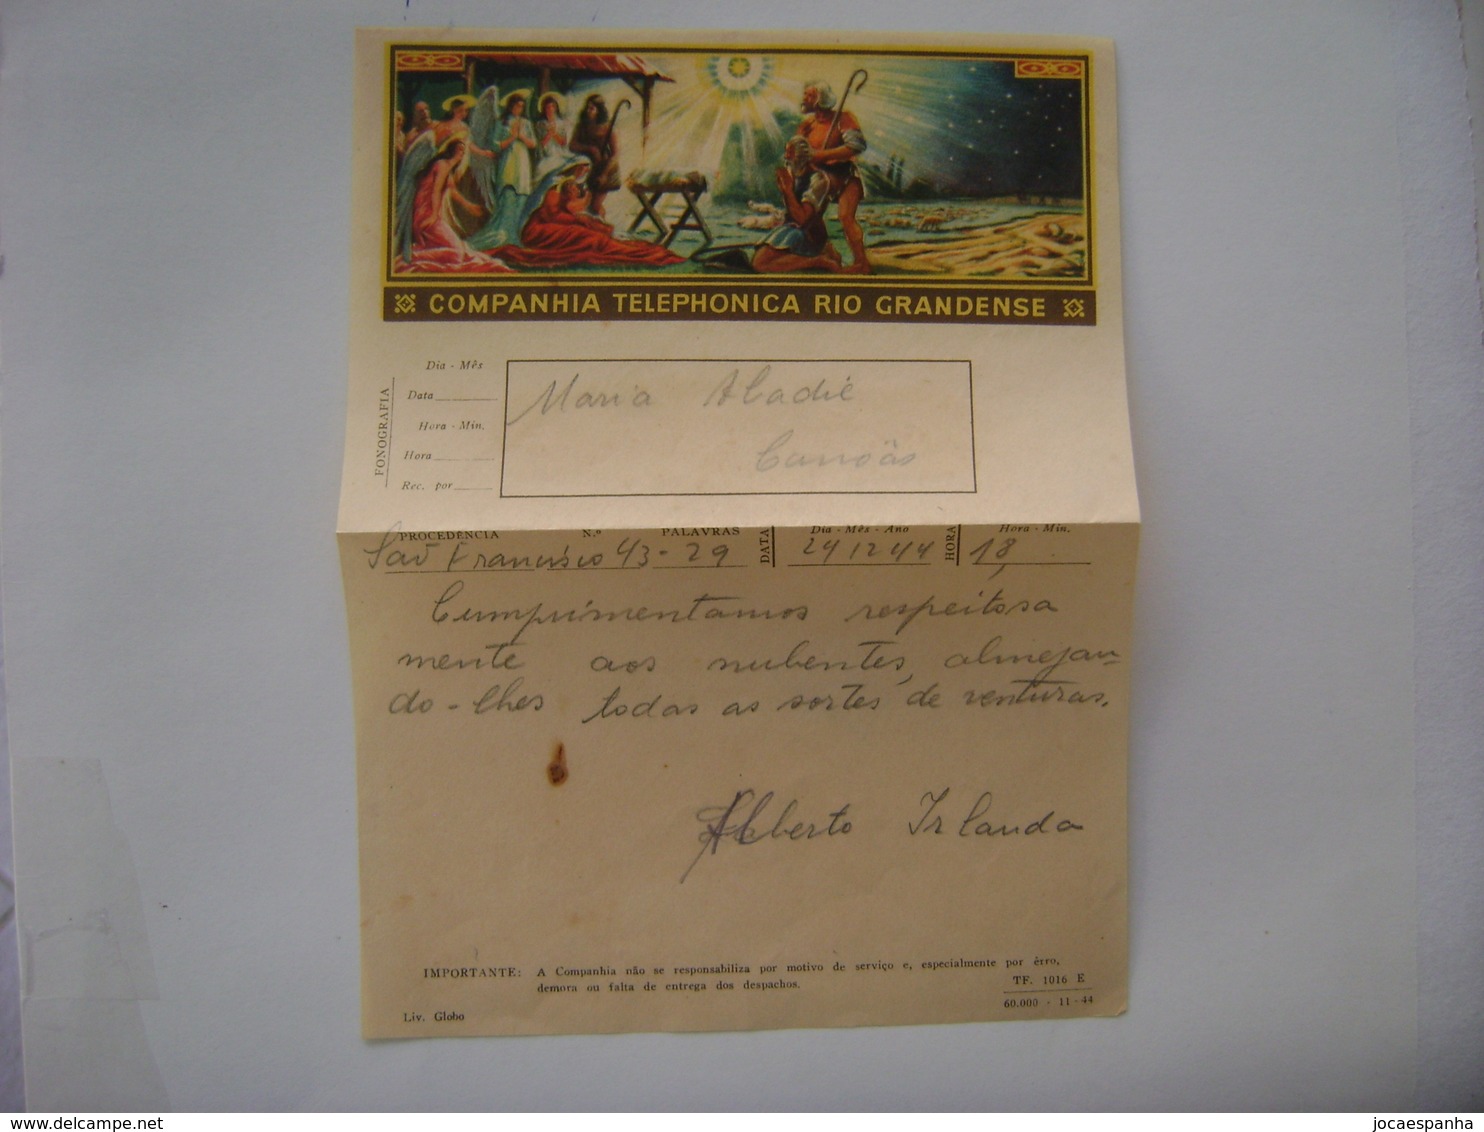 COMPANHIA TELEPHONICA RIO GRANDENSE
FONOGRAFIA
Dia - Mês
Data
Hora - Min.
Hora
Rec. por
Maria Aladié
Canoas
PROCEDÊNCIA N.º PALAVRAS DATA Dia - Mês - Ano HORA Hora - Min.
São Francisco 43 - 29 24 12 44 18,
Cumprimentamos respeitosa
mente aos nubentes, almejan-
do-lhes todas as sortes de venturas.
Alberto Irlanda
IMPORTANTE: A Companhia não se responsabiliza por motivo de serviço e, especialmente por êrro,
demora ou falta de entrega dos despachos.
TF. 1016 E
60.000 - 11-44
Liv. Globo
jocaespanha